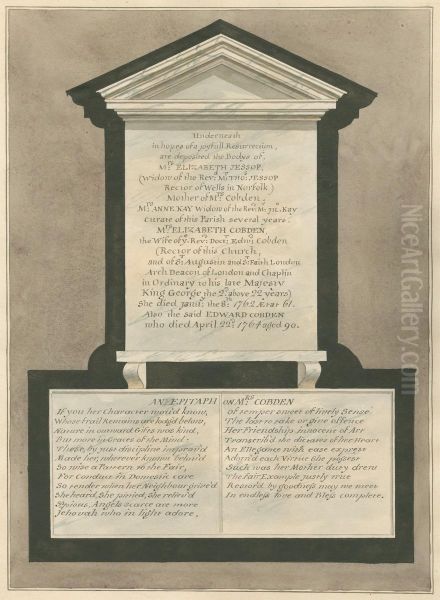 Underneath
in hopes of a joyfull Resurrection,
are deposited the Bodys of.
Mrs ELIZABETH JESSOP,
(Widow of the Revd: Mr: THOs: JESSOP
Rector of Wells in Norfolk)
Mother of Mrs Cobden.
Mrs ANNE KAY Widow of the Revd: Mr: Jno. Kay
Curate of this Parish several years.
Mrs ELIZABETH COBDEN,
the Wife of ye. Revd: Doctr: Edwd: Cobden
(Rector of this Church,
and of St: Augustin and St: Faith London
Arch Deacon of London and Chaplin
in Ordinary to his late Majesty
King George the 2d. above 22 years)
She died Janry: the 8th: 1762 Ætat 61.
Also the said EDWARD COBDEN
who died April 22d. 1764 aged 90.
AN EPITAPH ON MRS COBDEN
If you her Character wou'd know,
Whose frail Remains are lodg'd below,
Nature in outward Gifts was kind
But more in Graces of the Mind:
These, by just discipline improv'd
Made her, wherever known belov'd
So wise a Pattern to the Fair,
For Conduct in Domestic care
So tender when her Neighbour griev'd
She heard, She pittied, She reliev'd
Angels scarce are more
Jehovah who in light adore,
of temper sweet of lively Sense
The loor to take or give offence
Her Friendship innocent of Art
Transcrib'd the dictates of her Heart
An Ellegance with ease exprest
Adorn'd each Virtue She possest
Such was her Mother duty drew
The fair Example justly true
Record'd by goodness may we meet
In endless love and Bless complete.
NiceArtGallery.com